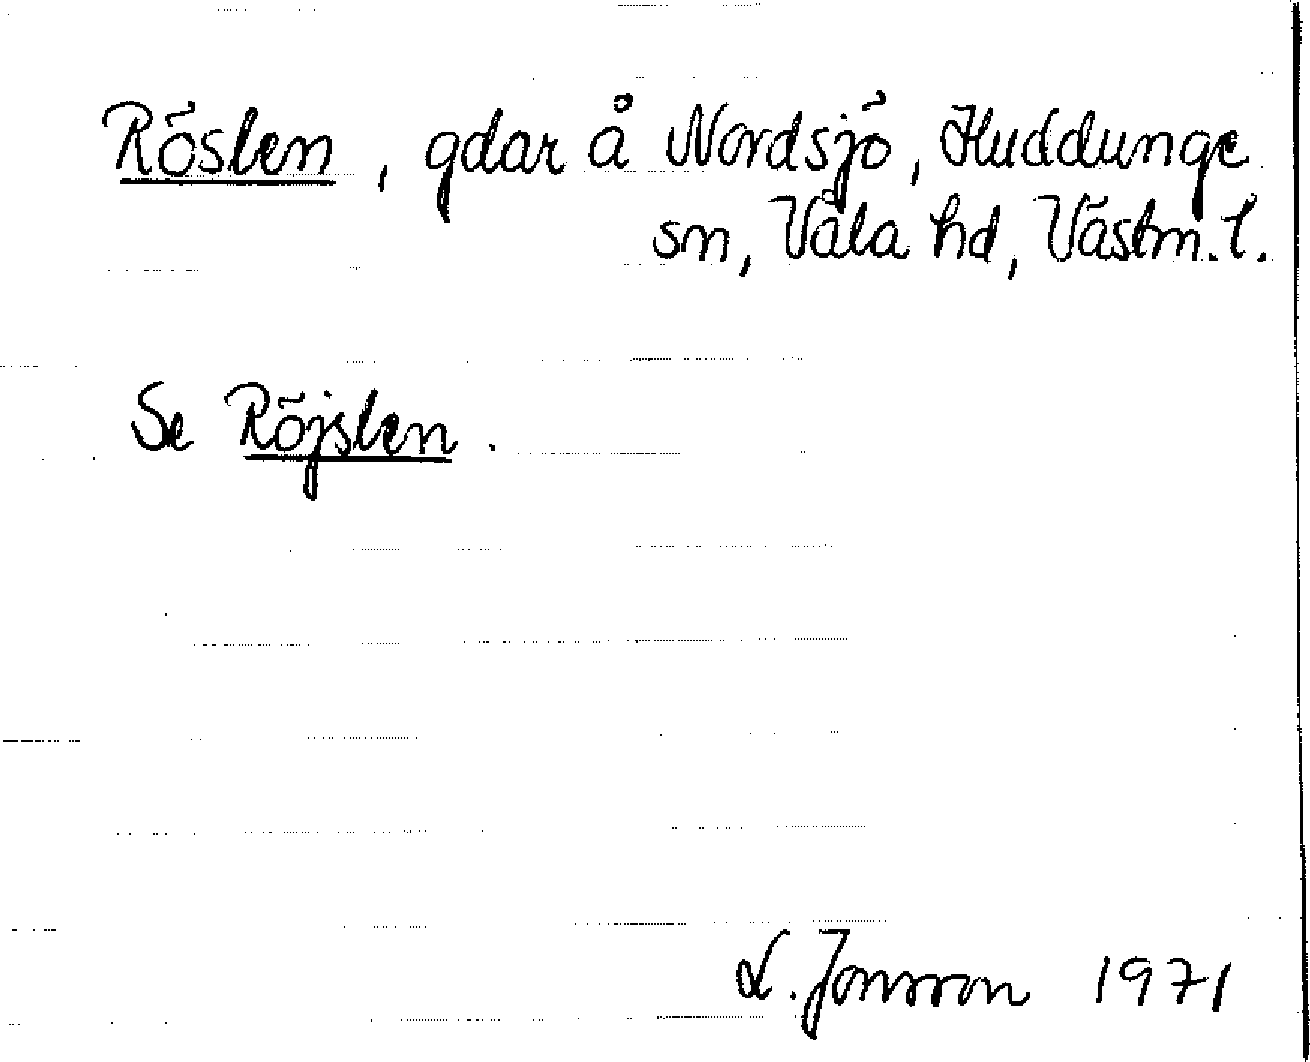 Röslen, gdar å Nordsjö, Huddunge
sn, Våla hd, Västm. l.
Se Röjslen.
L. Jonsson 1971